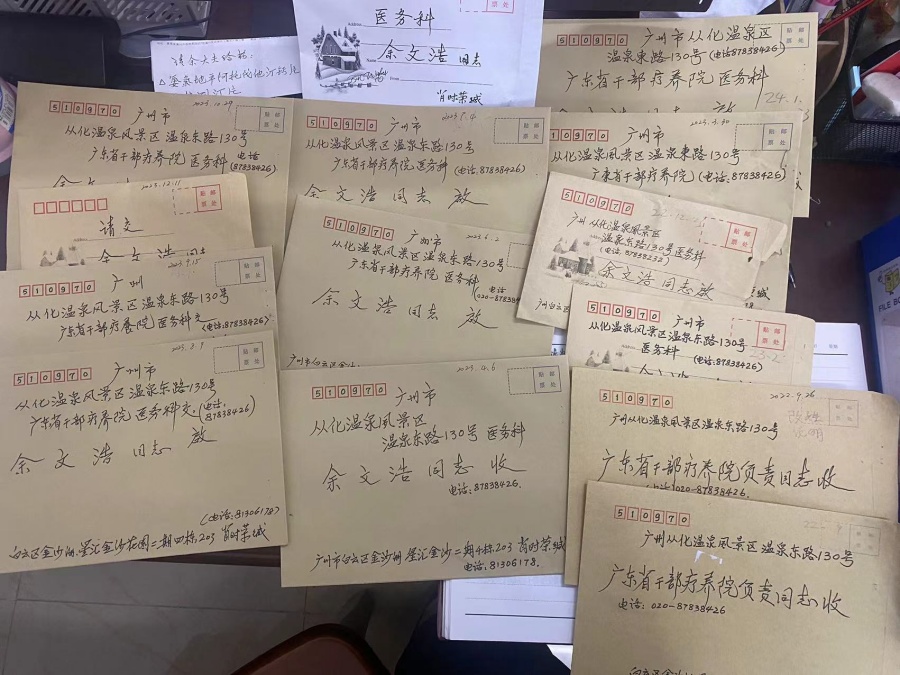 医务科
余文浩 同志
肖时荣城
请余大夫给我:
贴 邮
票 处
510970
广州市从化温泉区
温泉東路130号(电话87838426)
广东省干部疗养院医务科
24.1.
2023.10.29
510970
广州市
贴 邮
票 处
从化温泉风景区温泉东路130号
广东省干部疗养院医务科 电话
(87838426)
510970
广州市
贴 邮
票 处
从化温泉风景区温泉东路130号
广东省干部疗养院医务科(电话:87838426)
余文浩同志 啟
2023.3.30
510970
广州市
贴 邮
票 处
从化温泉風景区温泉東路130号
广東省干部疗养院(电话:87838426)
2023.12.11
贴 邮
票 处
请交
余文浩同志
2023.6.2
510970
广州市
贴 邮
票 处
从化温泉风景区温泉东路130号
广东省干部疗养院医务科
(电话
020-87838
余文浩同志 啟
广州市白云区金沙
510970
贴 邮
票 处
广州从化温泉风景区
温泉东路130号医务科
(电话:8783823
余文浩同志啟
广州白云区
2023.9.15
510970
广州
贴 邮
票 处
从化温泉风景区温泉东路130号
广东省干部疗养院医务科交(电话:87838426)
510970
广州市
贴 邮
票 处
从化温泉风景区温泉东路130号
医务科 (电话:87838426)
2023.8.9
510970
广州市
贴 邮
票 处
从化温泉风景区温泉东路130号
广东省干部疗养院医务科交(电话:
87838426)
余文浩同志 啟
(电话:81306178)
白云区金沙洲星汇金沙花园二期四栋203 肖时荣城
2023.4.6
510970
广州市
贴 邮
票 处
从化温泉風景区
温泉东路130号 医务科
余文浩同志收
电话:87838426.
广州市白云区金沙洲星汇金沙二期4栋203 肖时荣城
电话:81306178.
2022.9.26
510970
贴 邮
票 处
广州从化温泉风景区温泉东路130号
广东省干部疗养院负责同志收
(电话)020-87838426.
510970
贴 邮
票 处
广州从化温泉风景区温泉东路130号
广东省干部疗养院负责同志收
电话:020-87838426
FILE BO